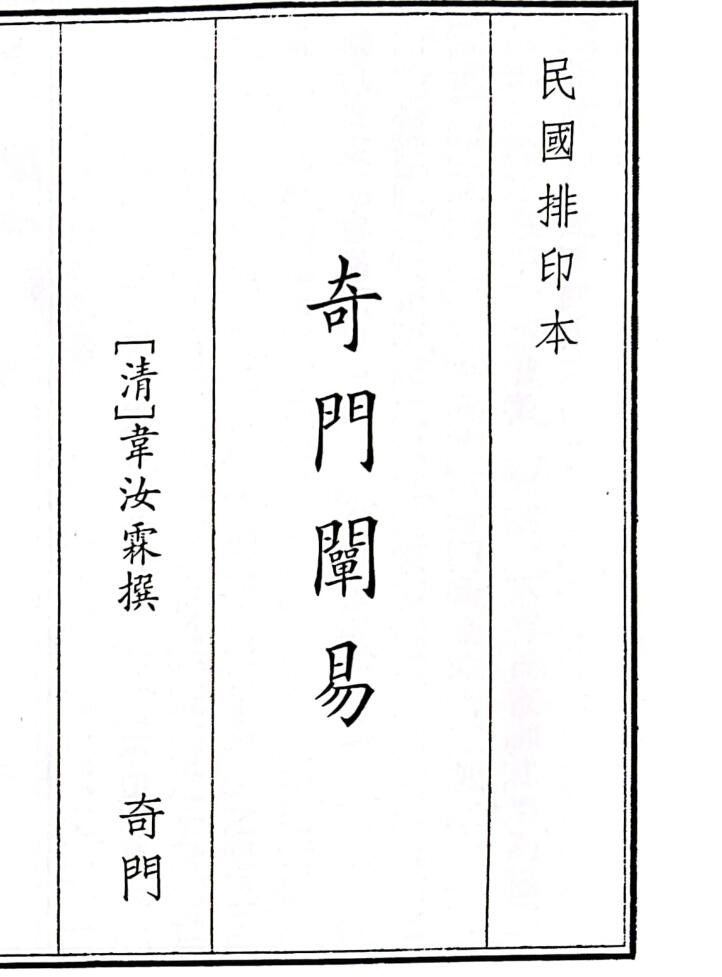 民國排印本
奇門闡易
[清]韋汝霖撰
奇門